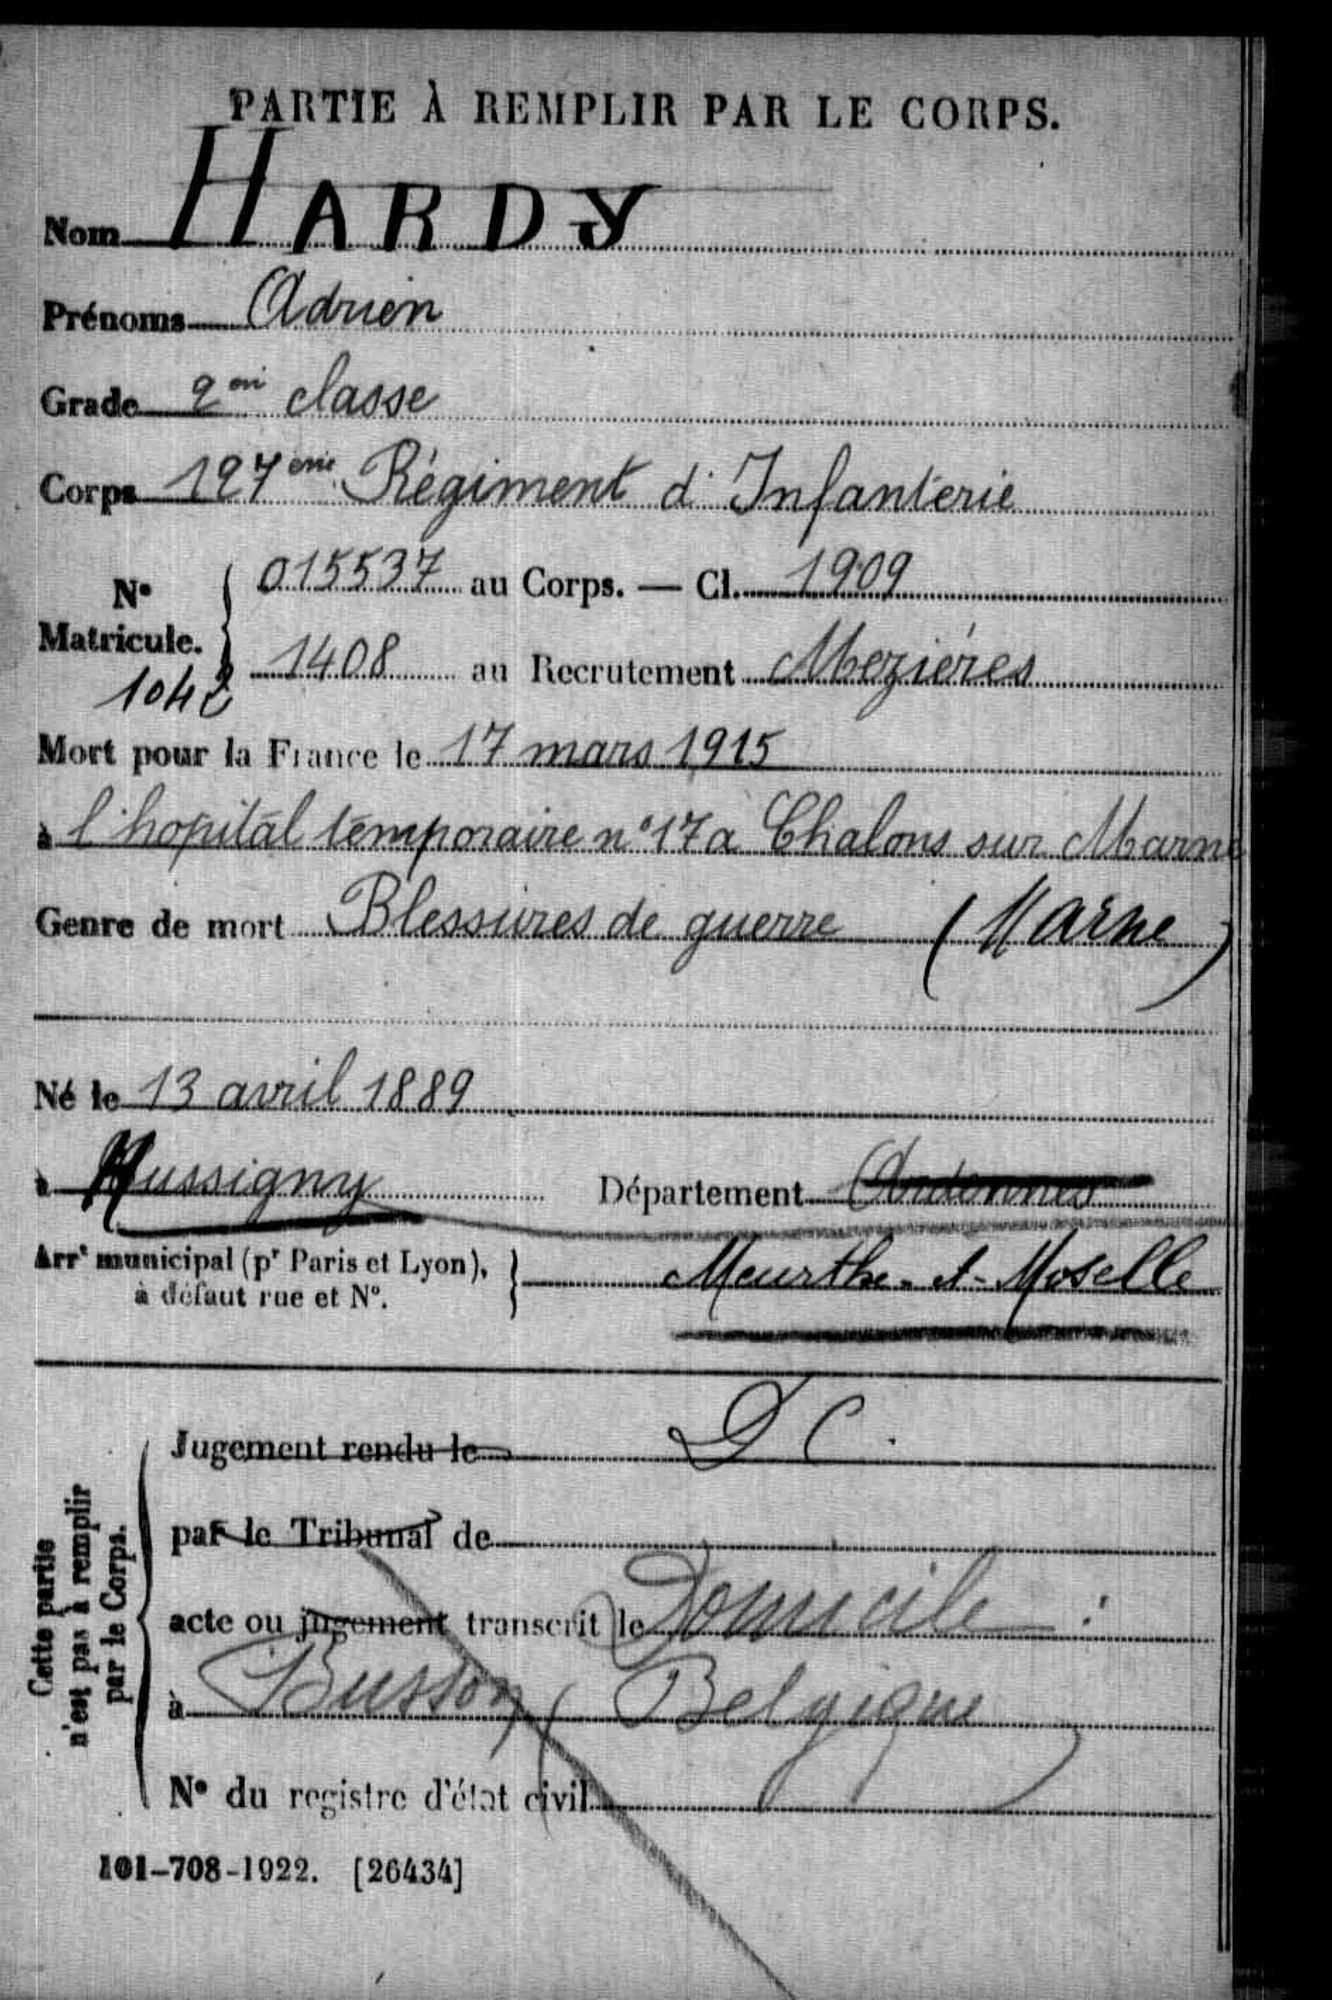 PARTIE À REMPLIR PAR LE CORPS.
Nom HARDY
Prénoms Adrien
Grade 2em classe
Corps 127eme Régiment d'Infanterie
N° Matricule. 015537 au Corps. — Cl. 1909
1408 au Recrutement Mezières
1042
Mort pour la France le 17 mars 1915
à l'hopital temporaire n° 17 a Chalons sur Marne
Genre de mort Blessures de guerre (Marne)
Né le 13 avril 1889
à Hussigny Département Ardennes
Arrt municipal (pr Paris et Lyon), à défaut rue et N°. Meurthe-et-Moselle
Cette partie n'est pas à remplir par le Corps.
Jugement rendu le D C.
par le Tribunal de
acte ou jugement transcrit le Domicile :
à Busson (Belgique)
N° du registre d'état civil
101-708-1922. [26434]